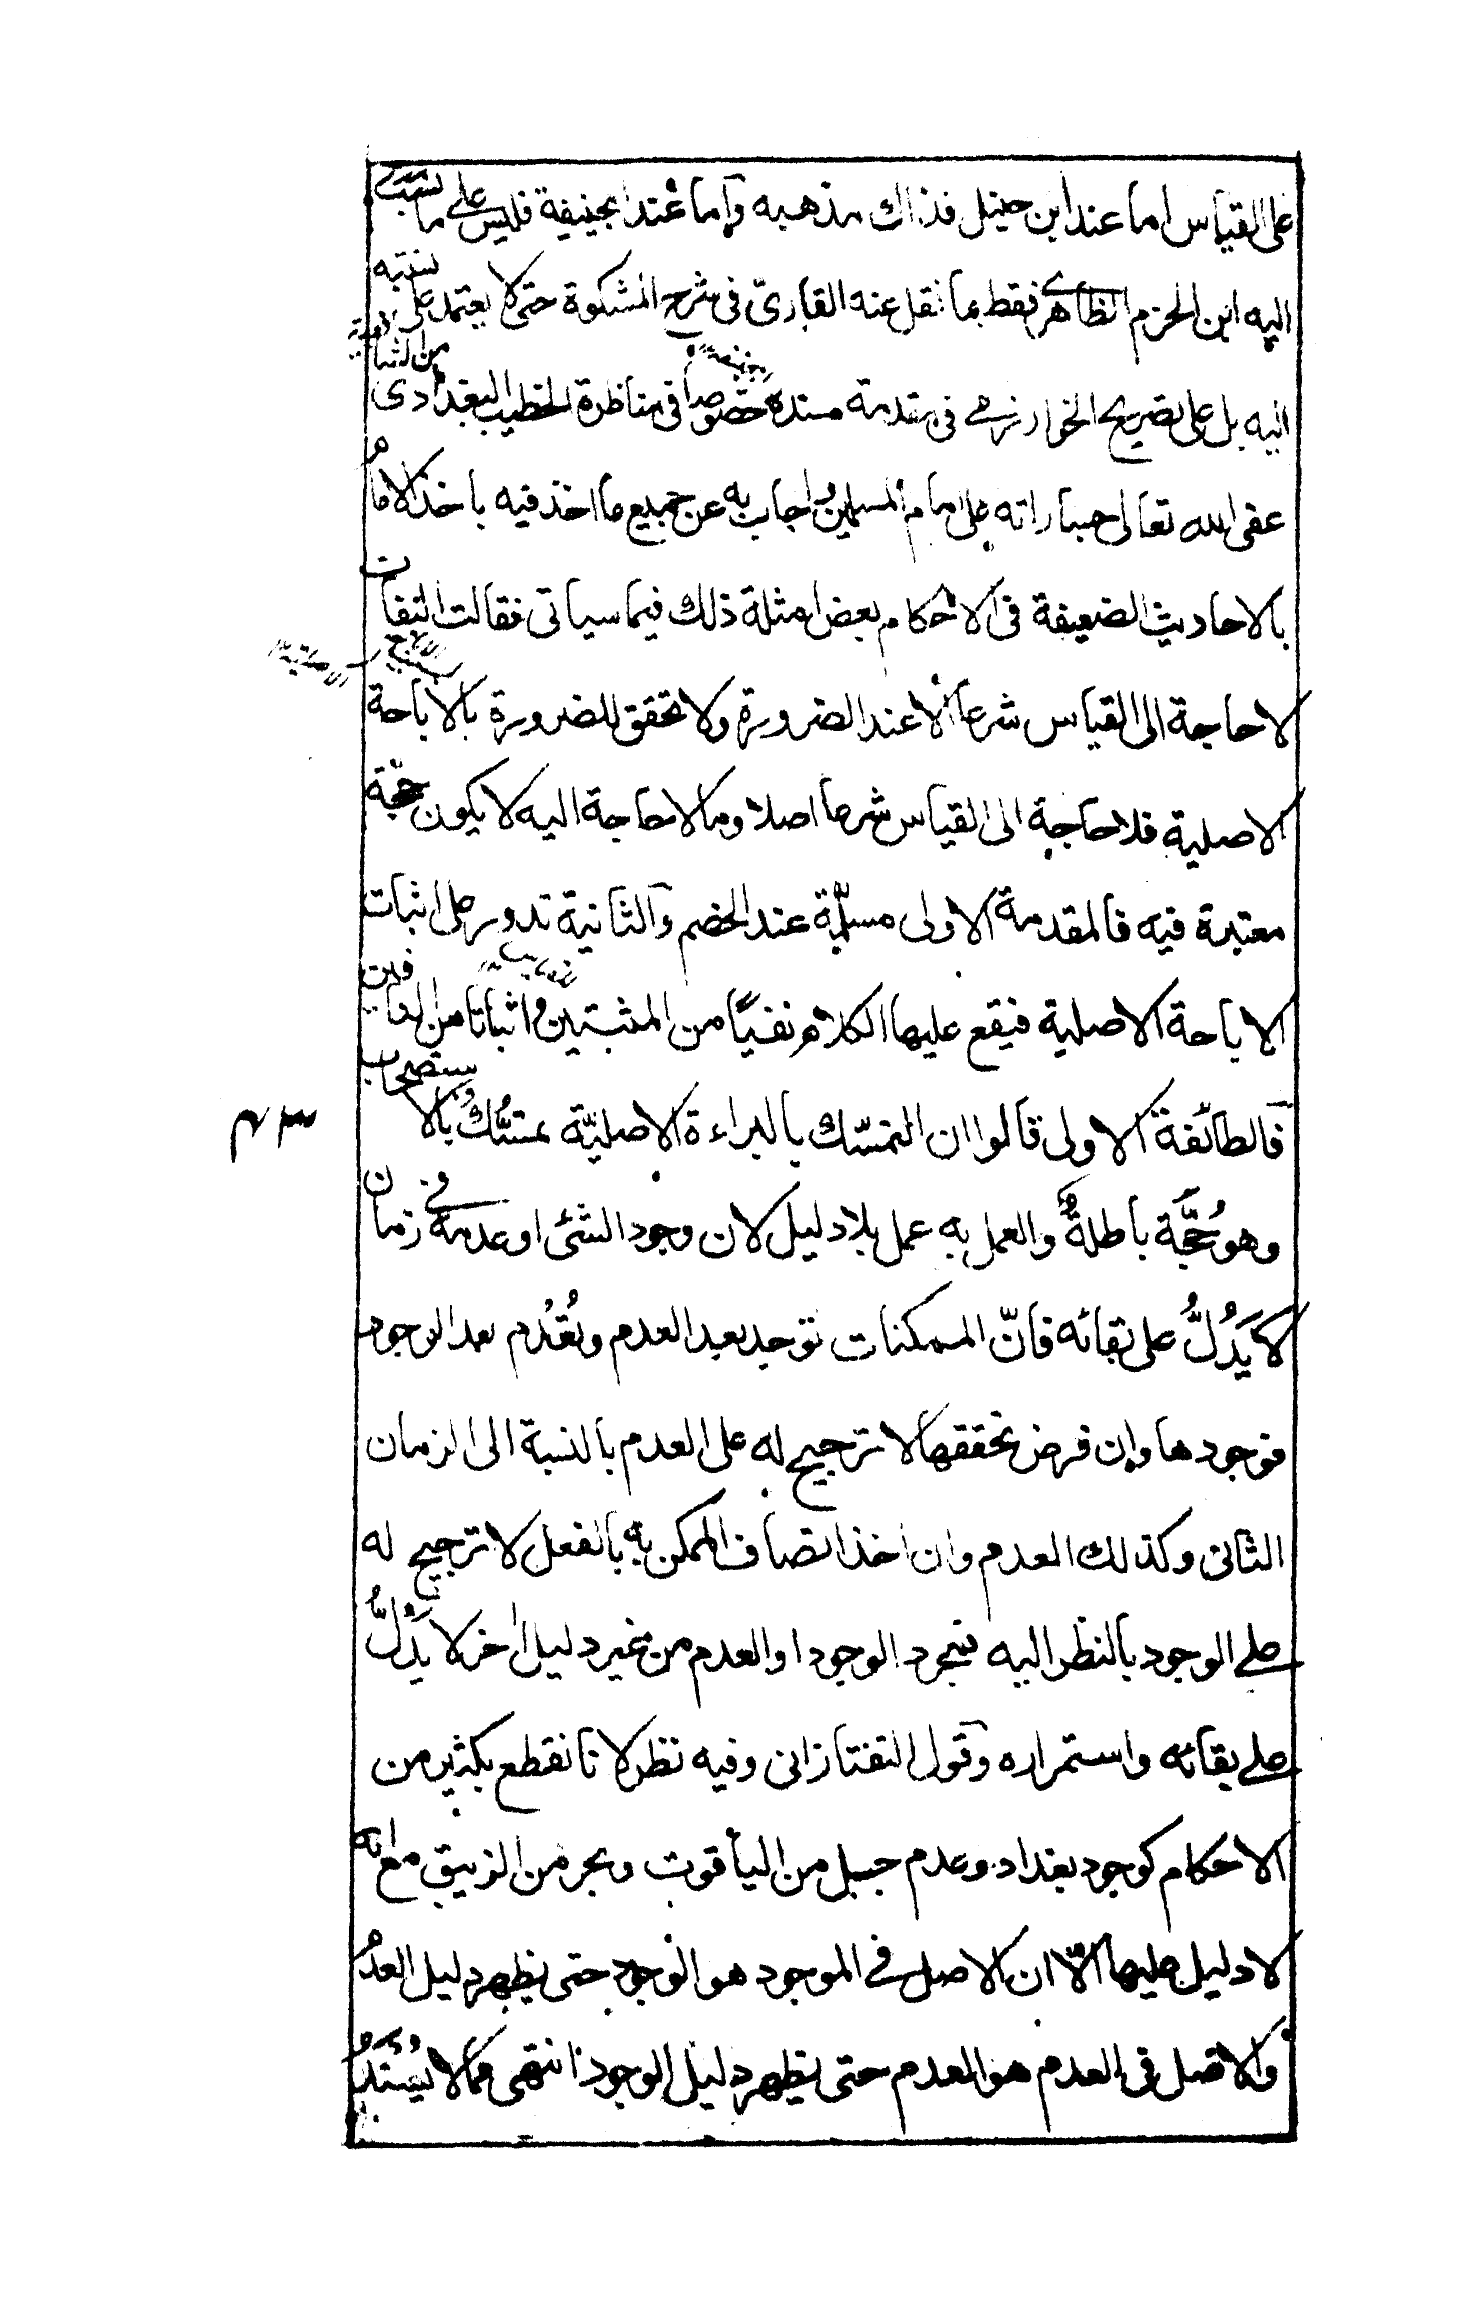 على القياس اما عند ابن حنبل فذاك مذهبه وآما عند ابيحنيفة فليس على ما نسب
اليه ابن الحزم الظاهرى فقط بما نقل عنه القارىّ فى شرح المشكوة حتى لا يعتمد على نسبته من الشافعية
اليه بل على تصريح الخوارزمى فى مقدمة مسنده خصوصا فى مناظرة الخطيب البغدادى
عفى الله تعالى جساراته على امام المسلمين واجاب به عن جميع ما اخذ فيه باخذ الامام
بالاحاديث الضعيفة فى الاحكام بعض امثلة ذلك فيما سياتى فقالت النفات
لا حاجة الى القياس شرعا الا عند الضرورة ولا تحقق للضرورة بالاباحة
الاصلية فلا حاجة الى القياس شرعا اصلا وما لا حاجة اليه لا يكون حجّة
معتبرة فيه فالمقدمة الاولى مسلّمة عند الخصم وآلثانية تدور على اثبات
الاباحة الاصلية فيقع عليها الكلام نفيًا من المثبتين واثباتا من النافين
فآلطائفة الاولى قالوا ان التمسّك بالبراءة الاصليّة تمسّكٌ بالاستصحاب
وهو حُجَّة باطلةٌ والعمل به عمل بلا دليل لان وجود الشئ او عدمه فى زمان
لا يَدُلُّ على بقائه فانّ الممكنات توجد بعد العدم وتُعْدُم بعد الوجود
فوجودها وان فرض تحققها لا ترجيح له على العدم بالنسبة الى الزمان
الثانى وكذلك العدم وان اخذ اتصاف الممكن به بالفعل لا ترجيح له
على الوجود بالنظر اليه فمجرد الوجود او العدم من غير دليل اٰخر لا يَدُلُّ
على بقائه واستمراره وقول التفتازانى وفيه نظر لانا نقطع بكثير من
الاحكام كوجود بغداد وعدم جبل من الياقوت وبحر من الزيبق مع انه
لا دليل عليها الّا ان الاصل فى الموجود هو الوجود حتى يظهر دليل العدم
والاصل فى العدم هو العدم حتى يظهر دليل الوجود انتهى فمما لا يُسْنَدُ
٤٣